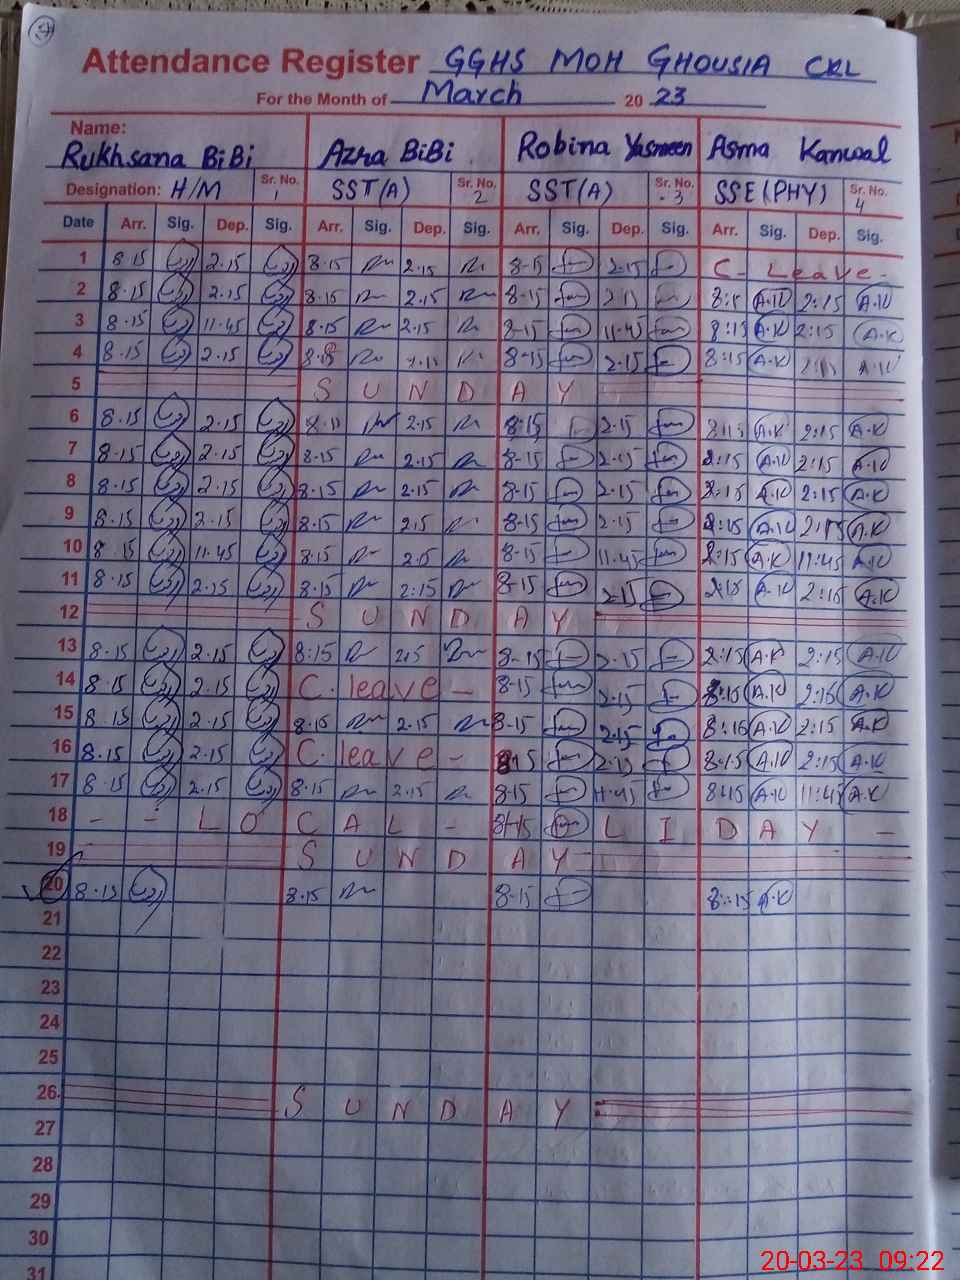 Attendance Register GGHS MOH GHOUSIA CKL
For the Month of March 20 23
Name:
Rukhsana BiBi Azra BiBi Robina Yasmeen Asma Kanwal
Designation: H/M Sr. No. 1 SST(A) Sr. No. 2 SST(A) Sr. No. 3 SSE(PHY) Sr. No. 4
Date Arr. Sig. Dep. Sig. Arr. Sig. Dep. Sig. Arr. Sig. Dep. Sig. Arr. Sig. Dep. Sig.
1 8.15 2.15 8.15 2.15 8-15 2.15 C- Leave-
2 8.15 2.15 8.15 2.15 8-15 A.K 2:15 A.K
3 8.15 11.45 8.15 2.15 8-15 11.45 8:15 A.K 2:15 A.K
4 8.15 2.15 8.15 8-15 2.15 8:15 A.K A.K
5 SUNDAY
6 8.15 2.15 2.15 8.15 2.15 A.K 2:15 A.K
7 8.15 2.15 8.15 2.15 8-15 2.15 A.K 2:15 A.K
8 8.15 2.15 8.15 2.15 8-15 2.15 A.K 2:15 A.K
9 8.15 2.15 8.15 8-15 2.15 A.K 2:15 A.K
10 8.15 11.45 8.15 8-15 11.45 A.K 11:45 A.K
11 8.15 2.15 8.15 2:15 8-15 2.15 A.K 2:15 A.K
12 SUNDAY
13 8.15 2.15 8:15 8-15 2.15 A.K 2:15 A.K
14 8.15 2.15 C. leave - 8-15 2.15 A.K 2:15 A.K
15 8.15 2.15 8.15 2.15 8-15 2.15 A.K 2:15 A.K
16 8.15 2.15 C. leave - 8.15 2.15 8:15 A.K 2:15 A.K
17 8.15 2.15 8.15 2.15 8-15 11.45 8:15 A.K 11:45 A.K
18 - - LOCAL - LIDAY -
19 SUNDAY
20 8.15 8.15 8-15 8:15 A.K
21
22
23
24
25
26 SUNDAY
27
28
29
30
31
20-03-23 09:22